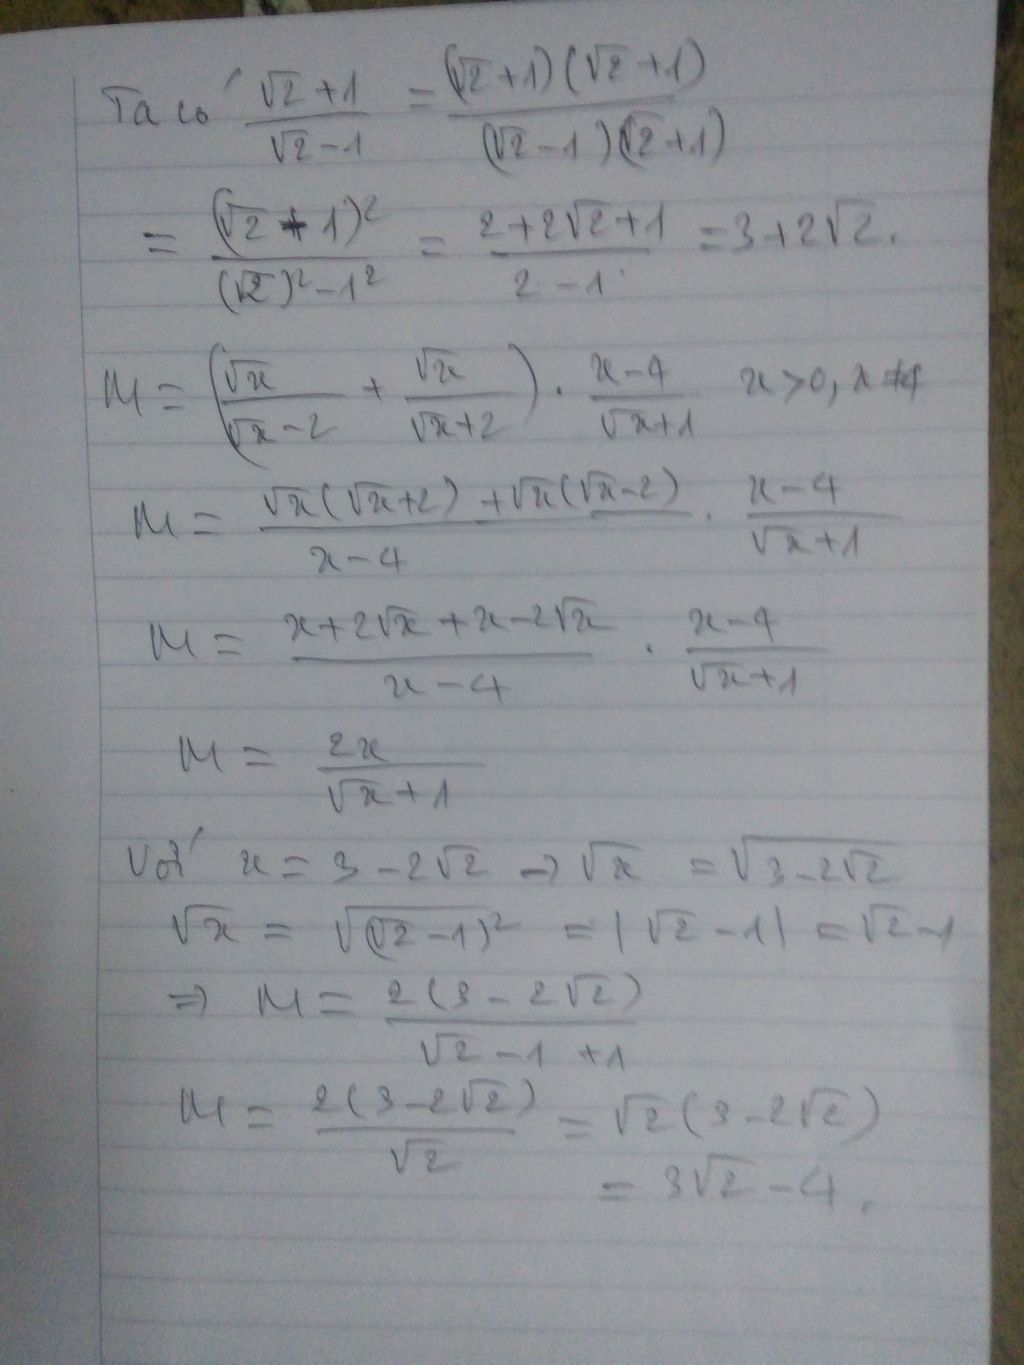 Ta có (√2+1)/(√2-1) = ((√2+1)(√2+1))/((√2-1)(√2+1))
= (√2+1)²/((√2)²-1²) = (2+2√2+1)/(2-1) = 3+2√2.
M = (√x/(√x-2) + √x/(√x+2)) · (x-4)/(√x+1) x>0, x≠4
M = (√x(√x+2)+√x(√x-2))/(x-4) · (x-4)/(√x+1)
M = (x+2√x+x-2√x)/(x-4) · (x-4)/(√x+1)
M = 2x/(√x+1)
Với x = 3-2√2 → √x = √(3-2√2)
√x = √((√2-1)²) = |√2-1| = √2-1
⇒ M = 2(3-2√2)/(√2-1+1)
M = 2(3-2√2)/√2 = √2(3-2√2)
= 3√2-4.